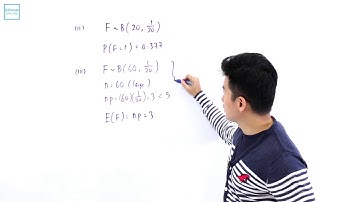 (ii) F ~ B(20, 1/20)
P(F=1) = 0.377
(iii) F ~ B(60, 1/20)
n = 60 (large)
np = (60)(1/20) = 3 < 5
E(F) = np = 3